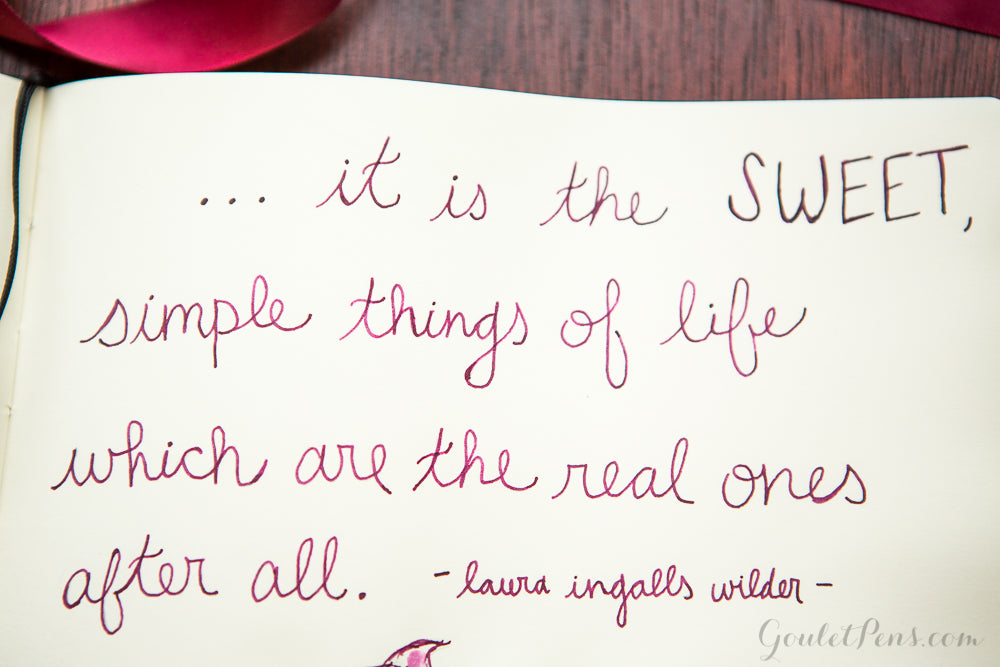 ... it is the SWEET,
simple things of life
which are the real ones
after all. -laura ingalls wilder-
GouletPens.com